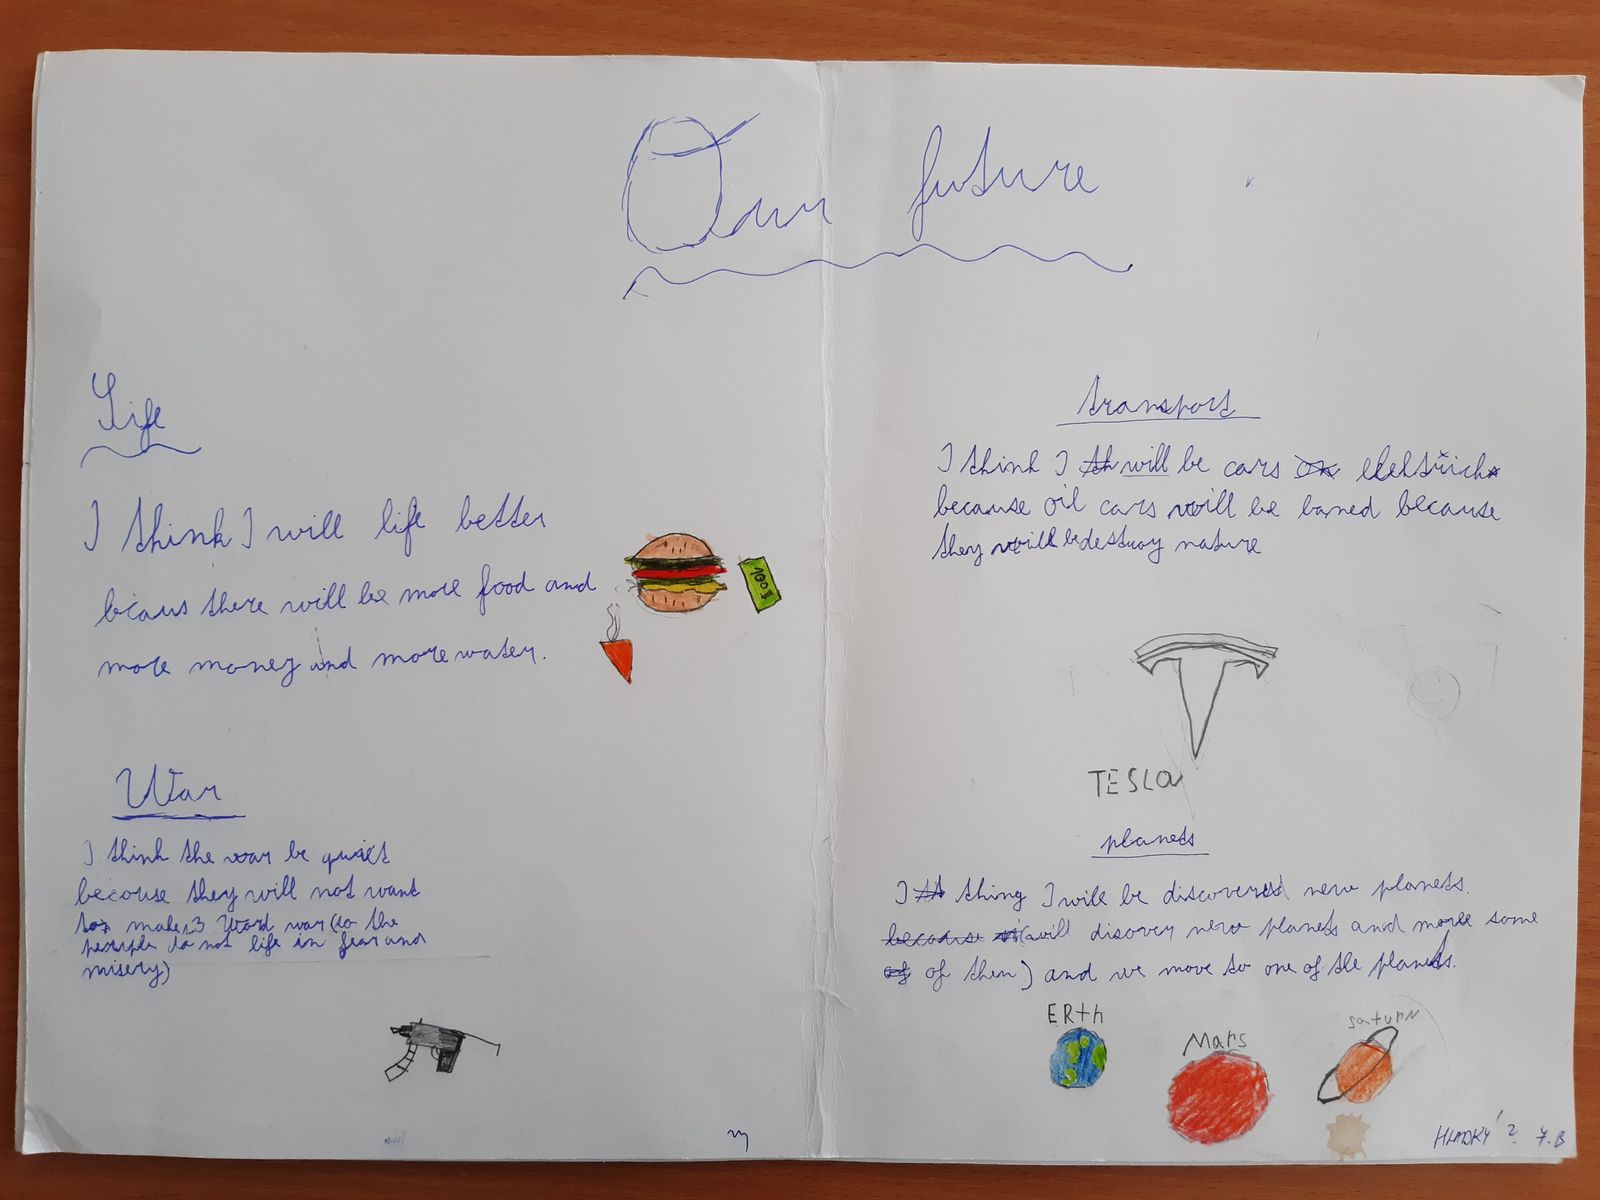 Our future
Life
I think I will life better
becaus there will be more food and
more money and more water.
100$
War
I think the war be quiet
becouse they will not want
to make 3 Word war (to the
people do not life in fear and
misery)
transport
I think I th will be cars elektrick
because oil cars will be baned because
they will be destroy nature
TESLa
planets
I th thing I will be discovered new planets.
because will discovery new planets and more some
of of them) and we move to one of the planets.
ERth
Mars
saturn
HLADKÝ 7.B